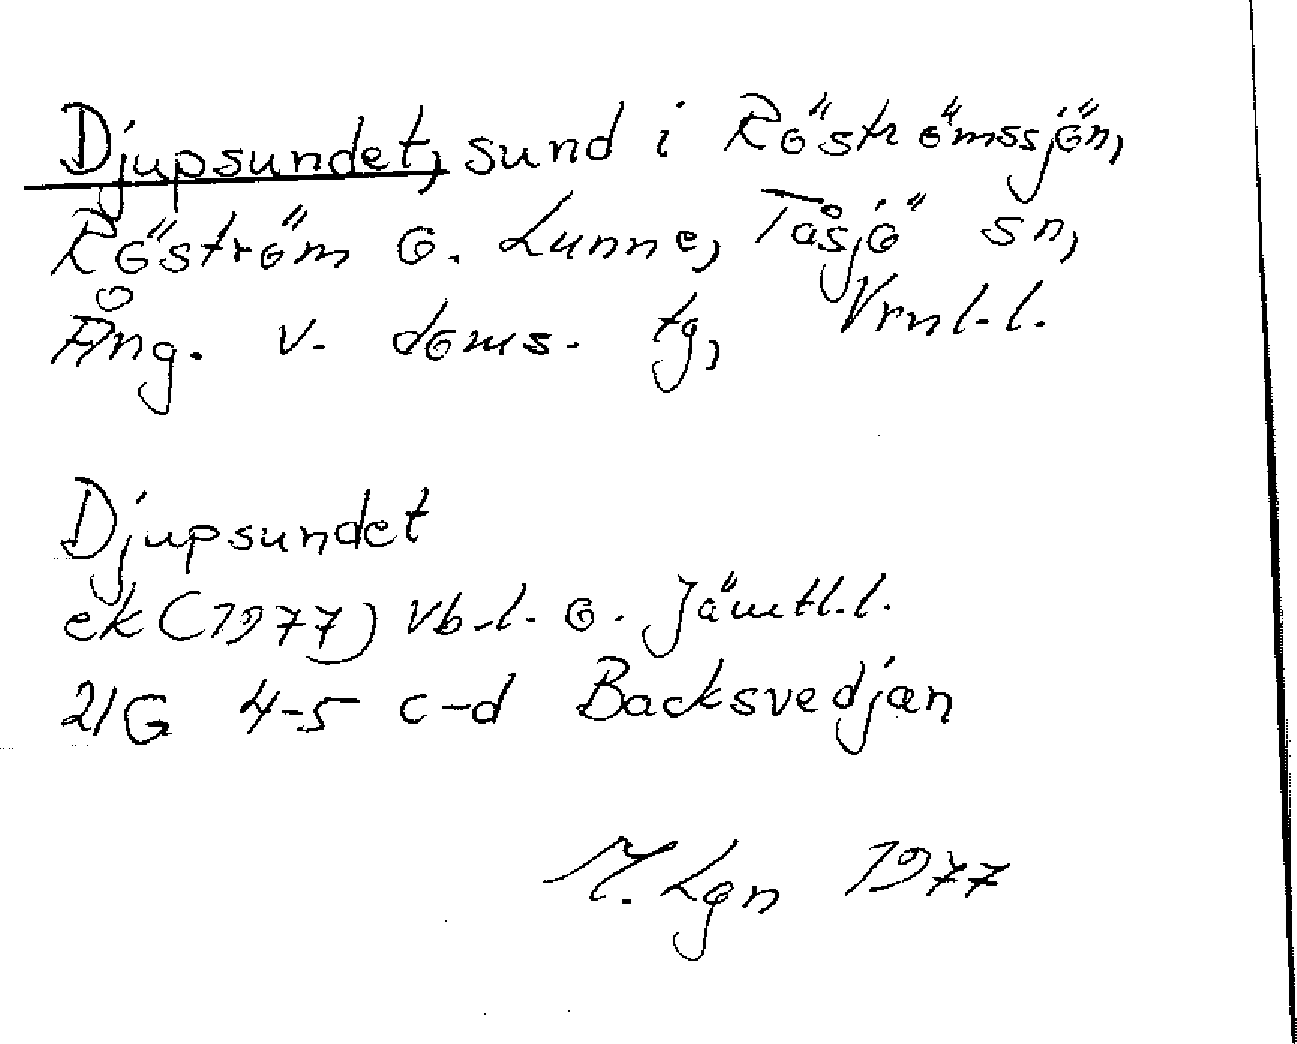 Djupsundet, sund i Röströmssjön,
Röström o. Lunne, Tåsjö sn,
Ång. v. doms. tg, Vrnl.l.
Djupsundet
ek (1977) Vb-l. o. Jämtl.l.
21G 4-5 c-d Backsvedjan
M. Lgn 1977